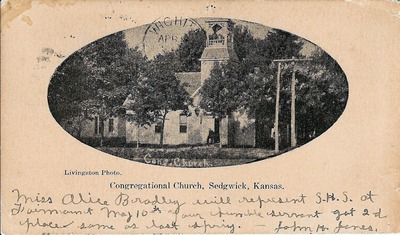 WICHIT
APR
Cong. Church
Livingston Photo.
Congregational Church, Sedgwick, Kansas.
Miss Alice Bradley will represent S.H.S. at
Fairmount May 10th your humble servant got 2d
place same as last spring. - John H. Jones.